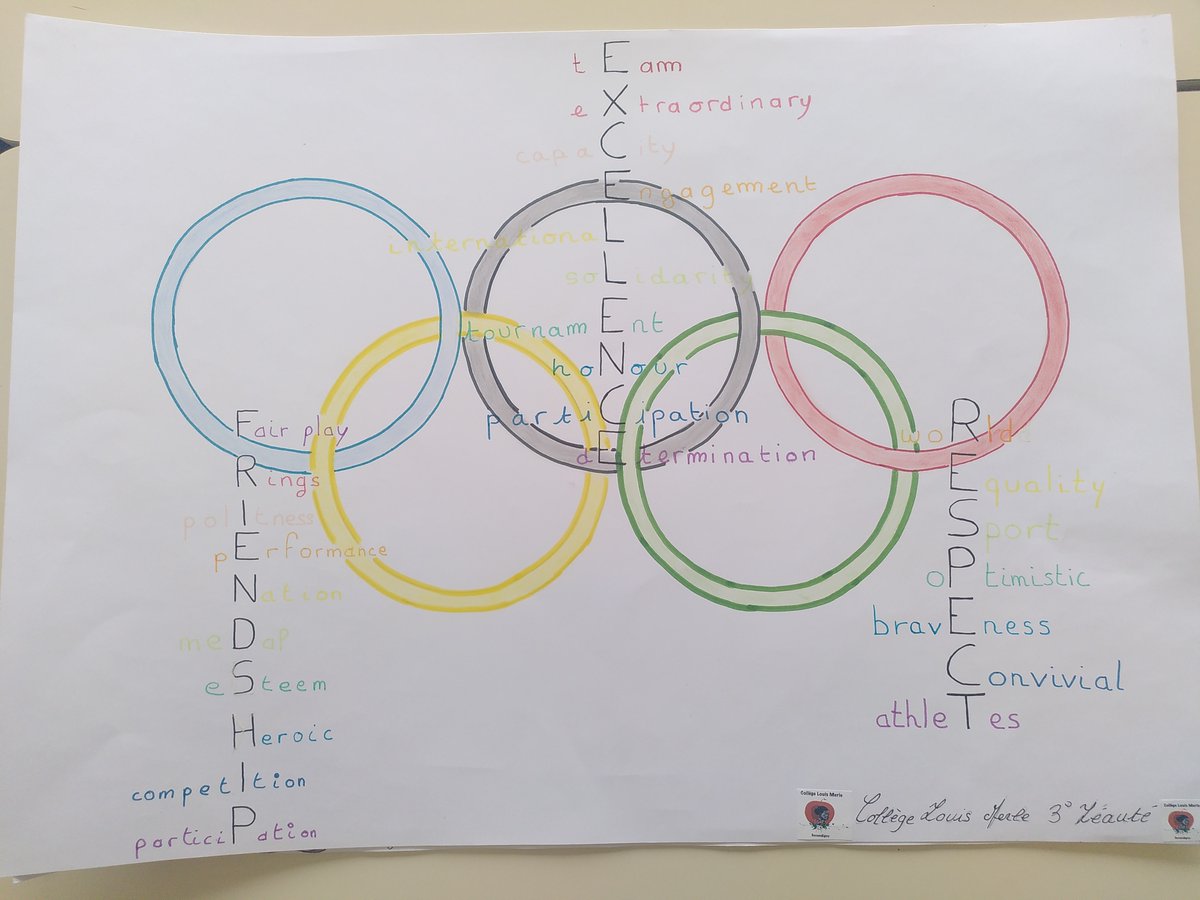 tEam
eXtraordinary
capaCity
Engagement
internationaL
soLidarity
tournamEnt
hoNour
partiCipation
dEtermination
Fair play
Rings
polItness
pErformance
Nation
meDal
eSteem
Heroic
competItion
particiPation
woRld
Equality
Sport
oPtimistic
bravEness
Convivial
athleTes
Collège Louis Merle
Secondigny
Collège Louis Merle 3° Léauté
Collège Louis Merle
Secondigny